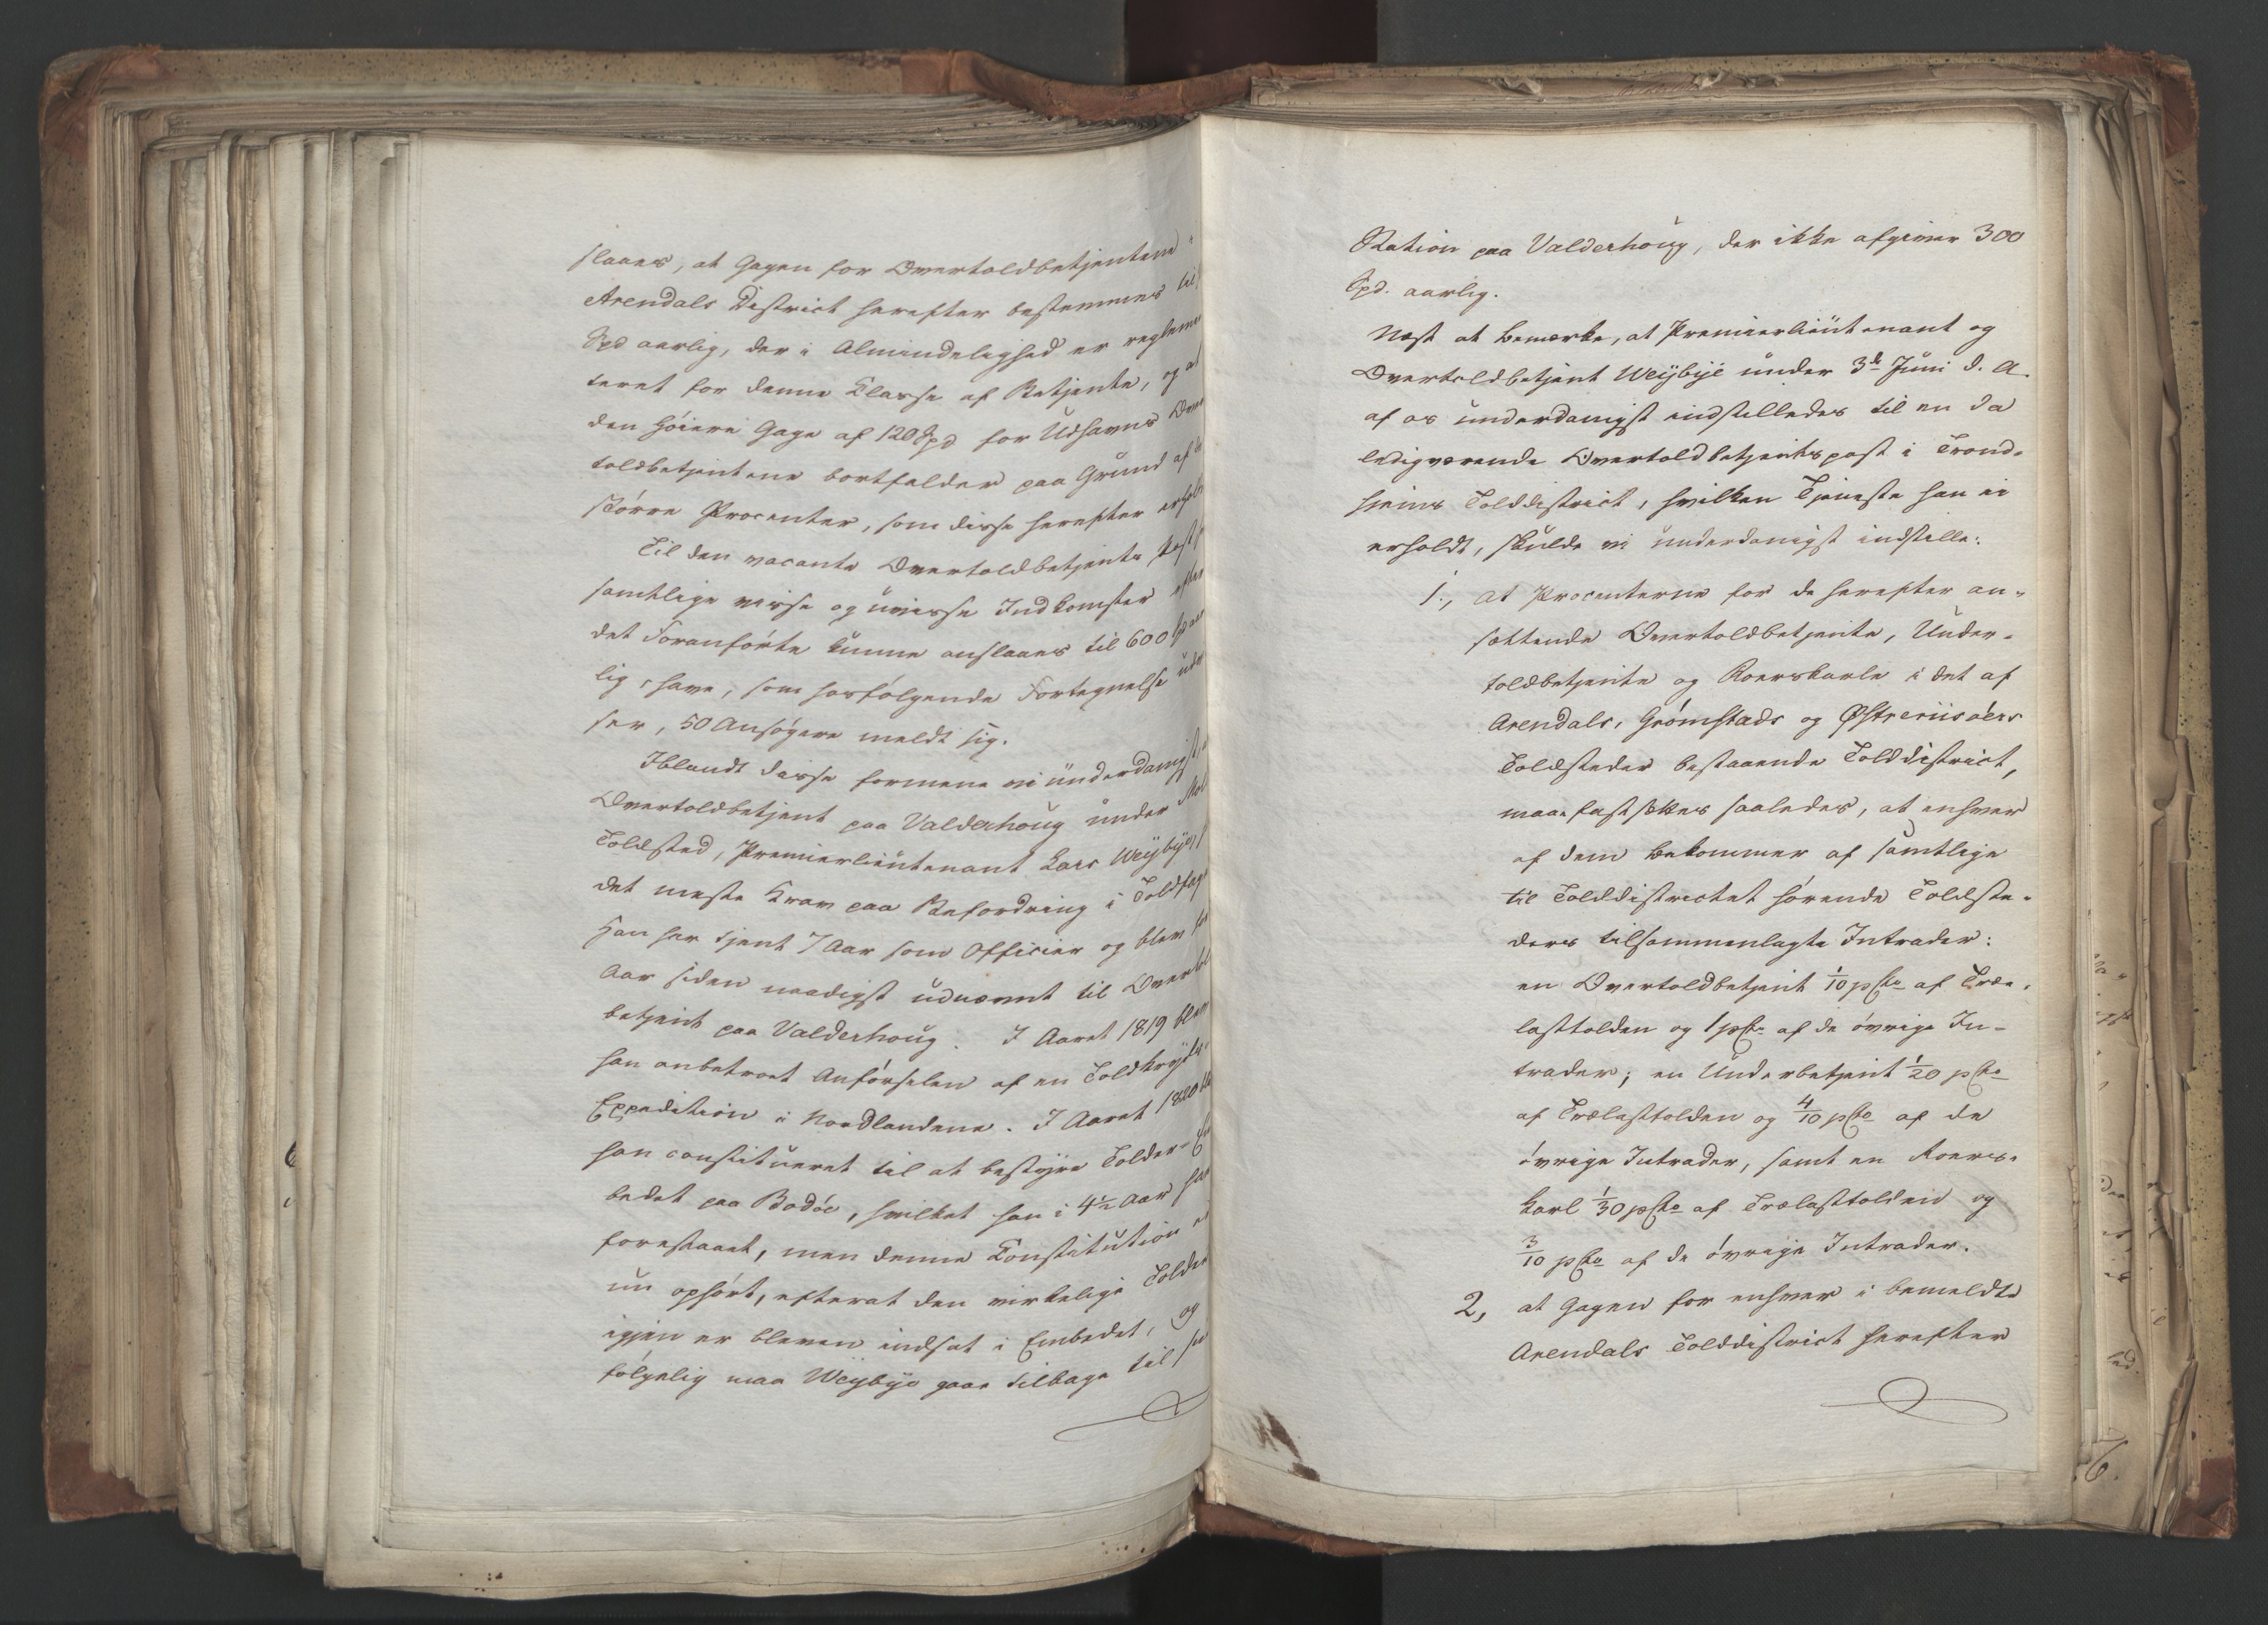 slaaes, at Gagen for Overtoldbetjentene i
Arendals District herefter bestemmes til
Spd aarlig, der i Almindelighed er reglemen
teret for denne Classe af Betjente, og at
den høiere Gage af 120 Spd for Udhavns Over
toldbetjentene bortfalder paa Grund af de
større Procenter, som disse herefter erholde
Til den vacante Overtoldbetjents Post
samtlige visse og uvisse Indkomster efter
det Foranførte kunne anslaaes til 600 Spd aar
lig, have, som hosfølgende Fortegnelse udvi
ser, 50 Ansøgere meldt sig.
Iblandt disse formene vi underdanigst,
Overtoldbetjent paa Valderhoug under Mol
Toldsted, Premierlieutenant Lars Weybye,
det meste Krav paa Befordring i Toldfag
Han har tjent 7 Aar som Officier og blev for
Aar siden naadigst udnævnt til Overtol
betjent paa Valderhoug. I Aaret 1819 blev
han anbetroet Anførselen af en Toldkryds-
Expedition i Nordlandene. I Aaret 1820 bl
han constitueret til at bestyre Tolder-Em
bedet paa Bodøe, hvilket han i 4½ Aar har
forestaaet, men denne Constitution er
nu ophørt, efterat den virkelige Tolder
igjen er bleven indsat i Embedet, og
følgelig maa Weybye gaae tilbage til
Station paa Valderhoug, der ikke afgiver 300
Spd. aarlig.
Næst at bemærke, at Premierlieutenant og
Overtoldbetjent Weybye under 3de Juni d. A.
af os underdanigst indstilledes til en da
ledigværende Overtoldbetjentspost i Trond-
hjems Tolddistrict, hvilken Tjeneste han ei
erholdt, skulde vi underdanigst indstille:
1., at Procenterne for de herefter an-
sættende Overtoldbetjente, Under-
toldbetjente og Roerskarle i det af
Arendals, Grømstads og Østreriisøers
Toldsteder bestaaende Tolddistrict,
maae fastsættes saaledes, at enhver
af dem bekommer af samtlige
til Tolddistrictet hørende Toldste-
ders tilsammenlagte Intrader:
en Overtoldbetjent 1/10 pCto af Træ-
lasttolden og 1 pCto af de øvrige In-
trader; en Underbetjent 1/20 pCto
af Trælasttolden og 4/10 pCto af de
øvrige Intrader, samt en Roers-
karl 1/30 pCto af Trælasttolden og
3/10 pCto af de øvrige Intrader.
2, at Gagen for enhver i bemeldte
Arendals Tolddistrict herefter